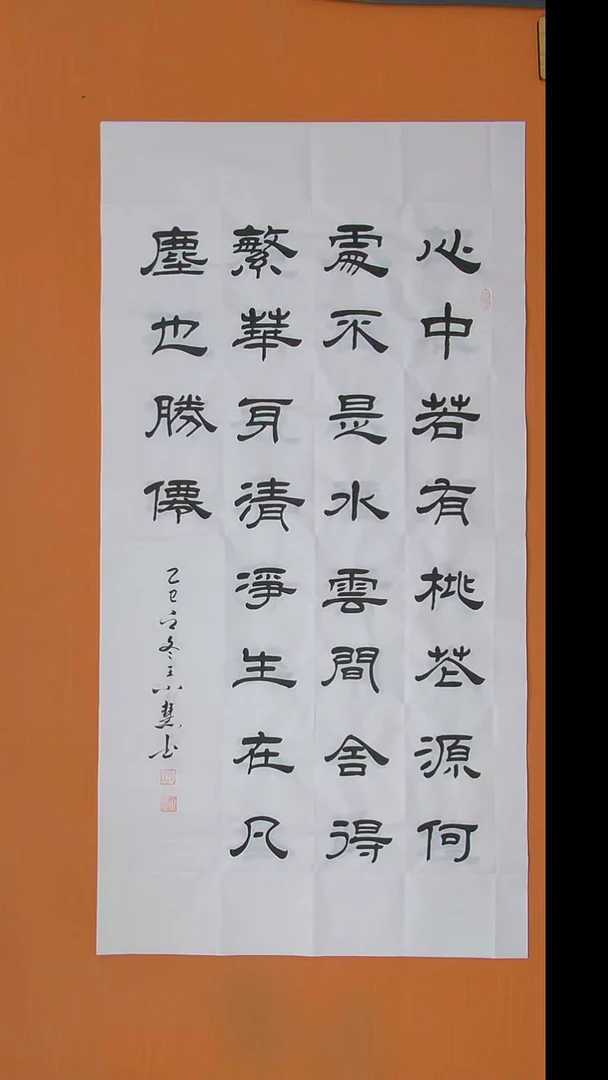 心中若有桃花源何
處不是水雲間舍得
繁華身清淨生在凡
塵也勝僊
乙巳之冬王小慧书